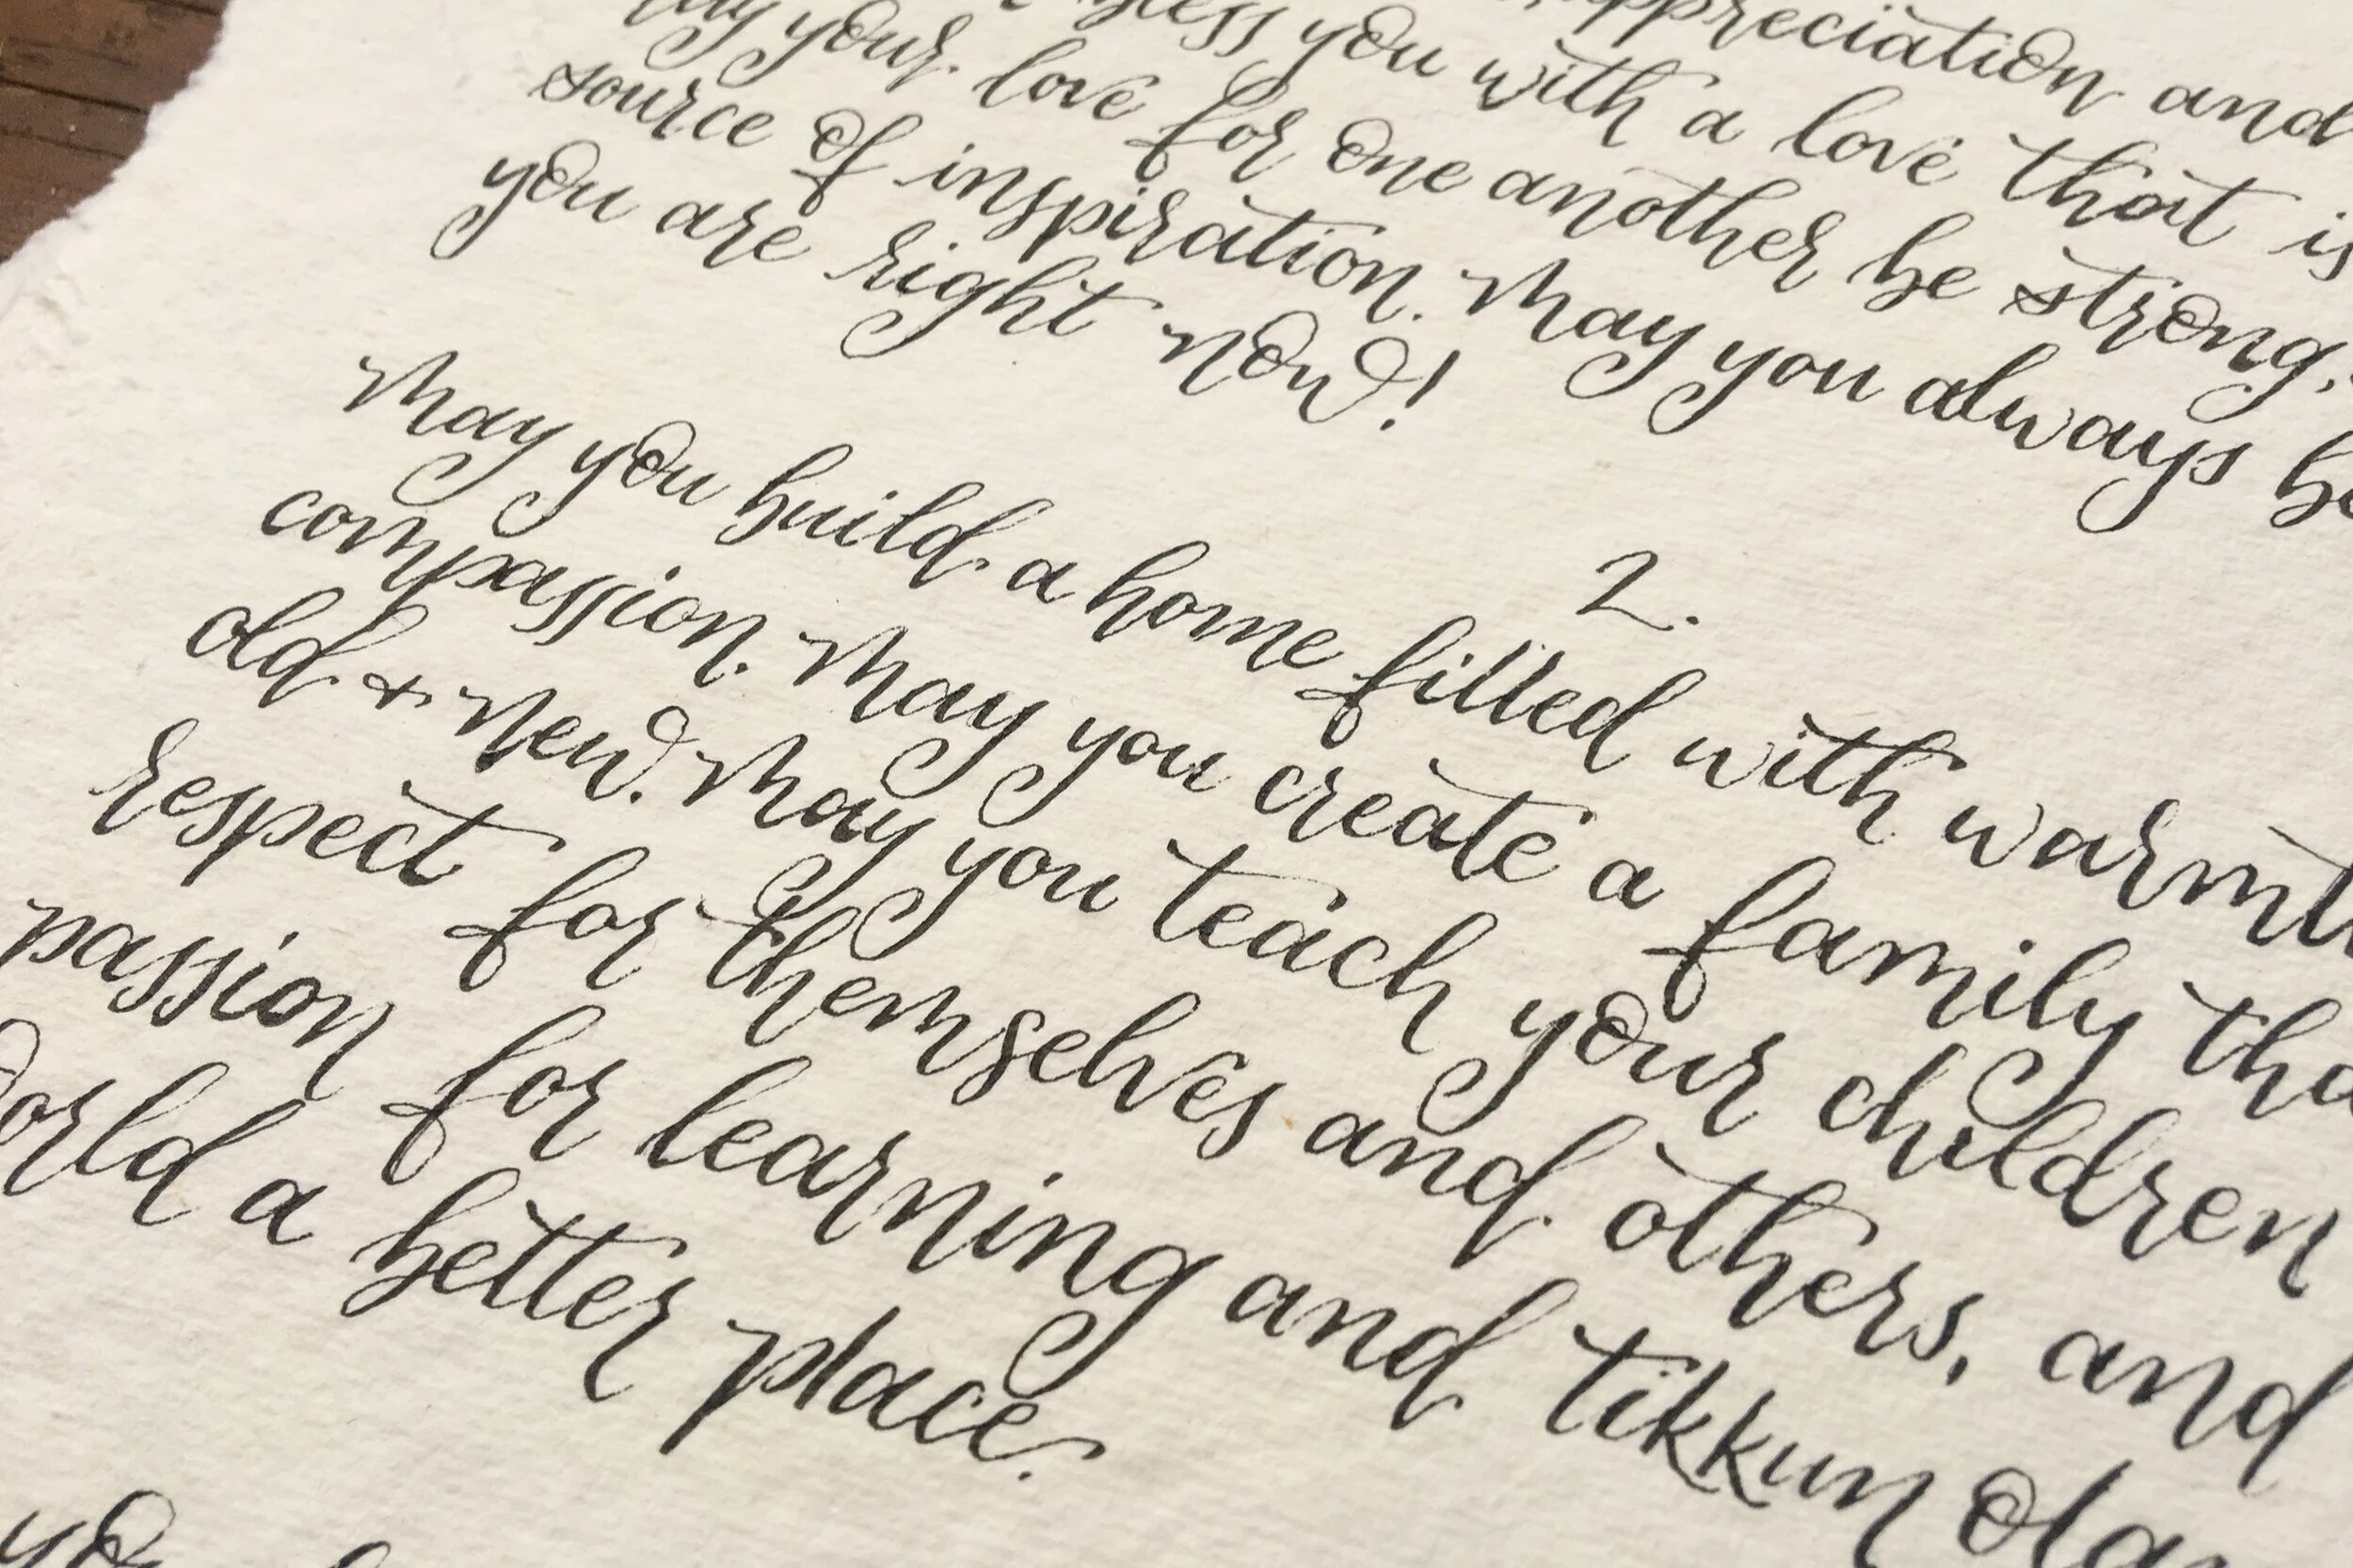 appreciation and
bless you with a love that is
May your love for one another be strong,
source of inspiration. May you always be
you are right now!
2.
May you build a home filled with warmth
compassion. May you create a family tha
old + new. May you teach your children
respect for themselves and others, and
passion for learning and tikkun ola
world a better place.